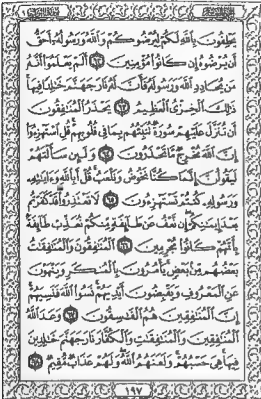 يَحْلِفُونَ بِاللَّهِ لَكُمْ لِيُرْضُوكُمْ وَاللَّهُ وَرَسُولُهُ أَحَقُّ
أَن يُرْضُوهُ إِن كَانُوا مُؤْمِنِينَ ٦٢ أَلَمْ يَعْلَمُوا أَنَّهُ
مَن يُحَادِدِ اللَّهَ وَرَسُولَهُ فَأَنَّ لَهُ نَارَ جَهَنَّمَ خَالِدًا فِيهَا
ذَٰلِكَ الْخِزْيُ الْعَظِيمُ ٦٣ يَحْذَرُ الْمُنَافِقُونَ
أَن تُنَزَّلَ عَلَيْهِمْ سُورَةٌ تُنَبِّئُهُم بِمَا فِي قُلُوبِهِمْ قُلِ اسْتَهْزِءُوا
إِنَّ اللَّهَ مُخْرِجٌ مَّا تَحْذَرُونَ ٦٤ وَلَئِن سَأَلْتَهُمْ
لَيَقُولُنَّ إِنَّمَا كُنَّا نَخُوضُ وَنَلْعَبُ قُلْ أَبِاللَّهِ وَآيَاتِهِ
وَرَسُولِهِ كُنتُمْ تَسْتَهْزِءُونَ ٦٥ لَا تَعْتَذِرُوا قَدْ كَفَرْتُم
بَعْدَ إِيمَانِكُمْ إِن نَّعْفُ عَن طَائِفَةٍ مِّنكُمْ نُعَذِّبْ طَائِفَةً
بِأَنَّهُمْ كَانُوا مُجْرِمِينَ ٦٦ الْمُنَافِقُونَ وَالْمُنَافِقَاتُ
بَعْضُهُم مِّن بَعْضٍ يَأْمُرُونَ بِالْمُنكَرِ وَيَنْهَوْنَ
عَنِ الْمَعْرُوفِ وَيَقْبِضُونَ أَيْدِيَهُمْ نَسُوا اللَّهَ فَنَسِيَهُمْ
إِنَّ الْمُنَافِقِينَ هُمُ الْفَاسِقُونَ ٦٧ وَعَدَ اللَّهُ
الْمُنَافِقِينَ وَالْمُنَافِقَاتِ وَالْكُفَّارَ نَارَ جَهَنَّمَ خَالِدِينَ
فِيهَا هِيَ حَسْبُهُمْ وَلَعَنَهُمُ اللَّهُ وَلَهُمْ عَذَابٌ مُّقِيمٌ ٦٨
١٩٧